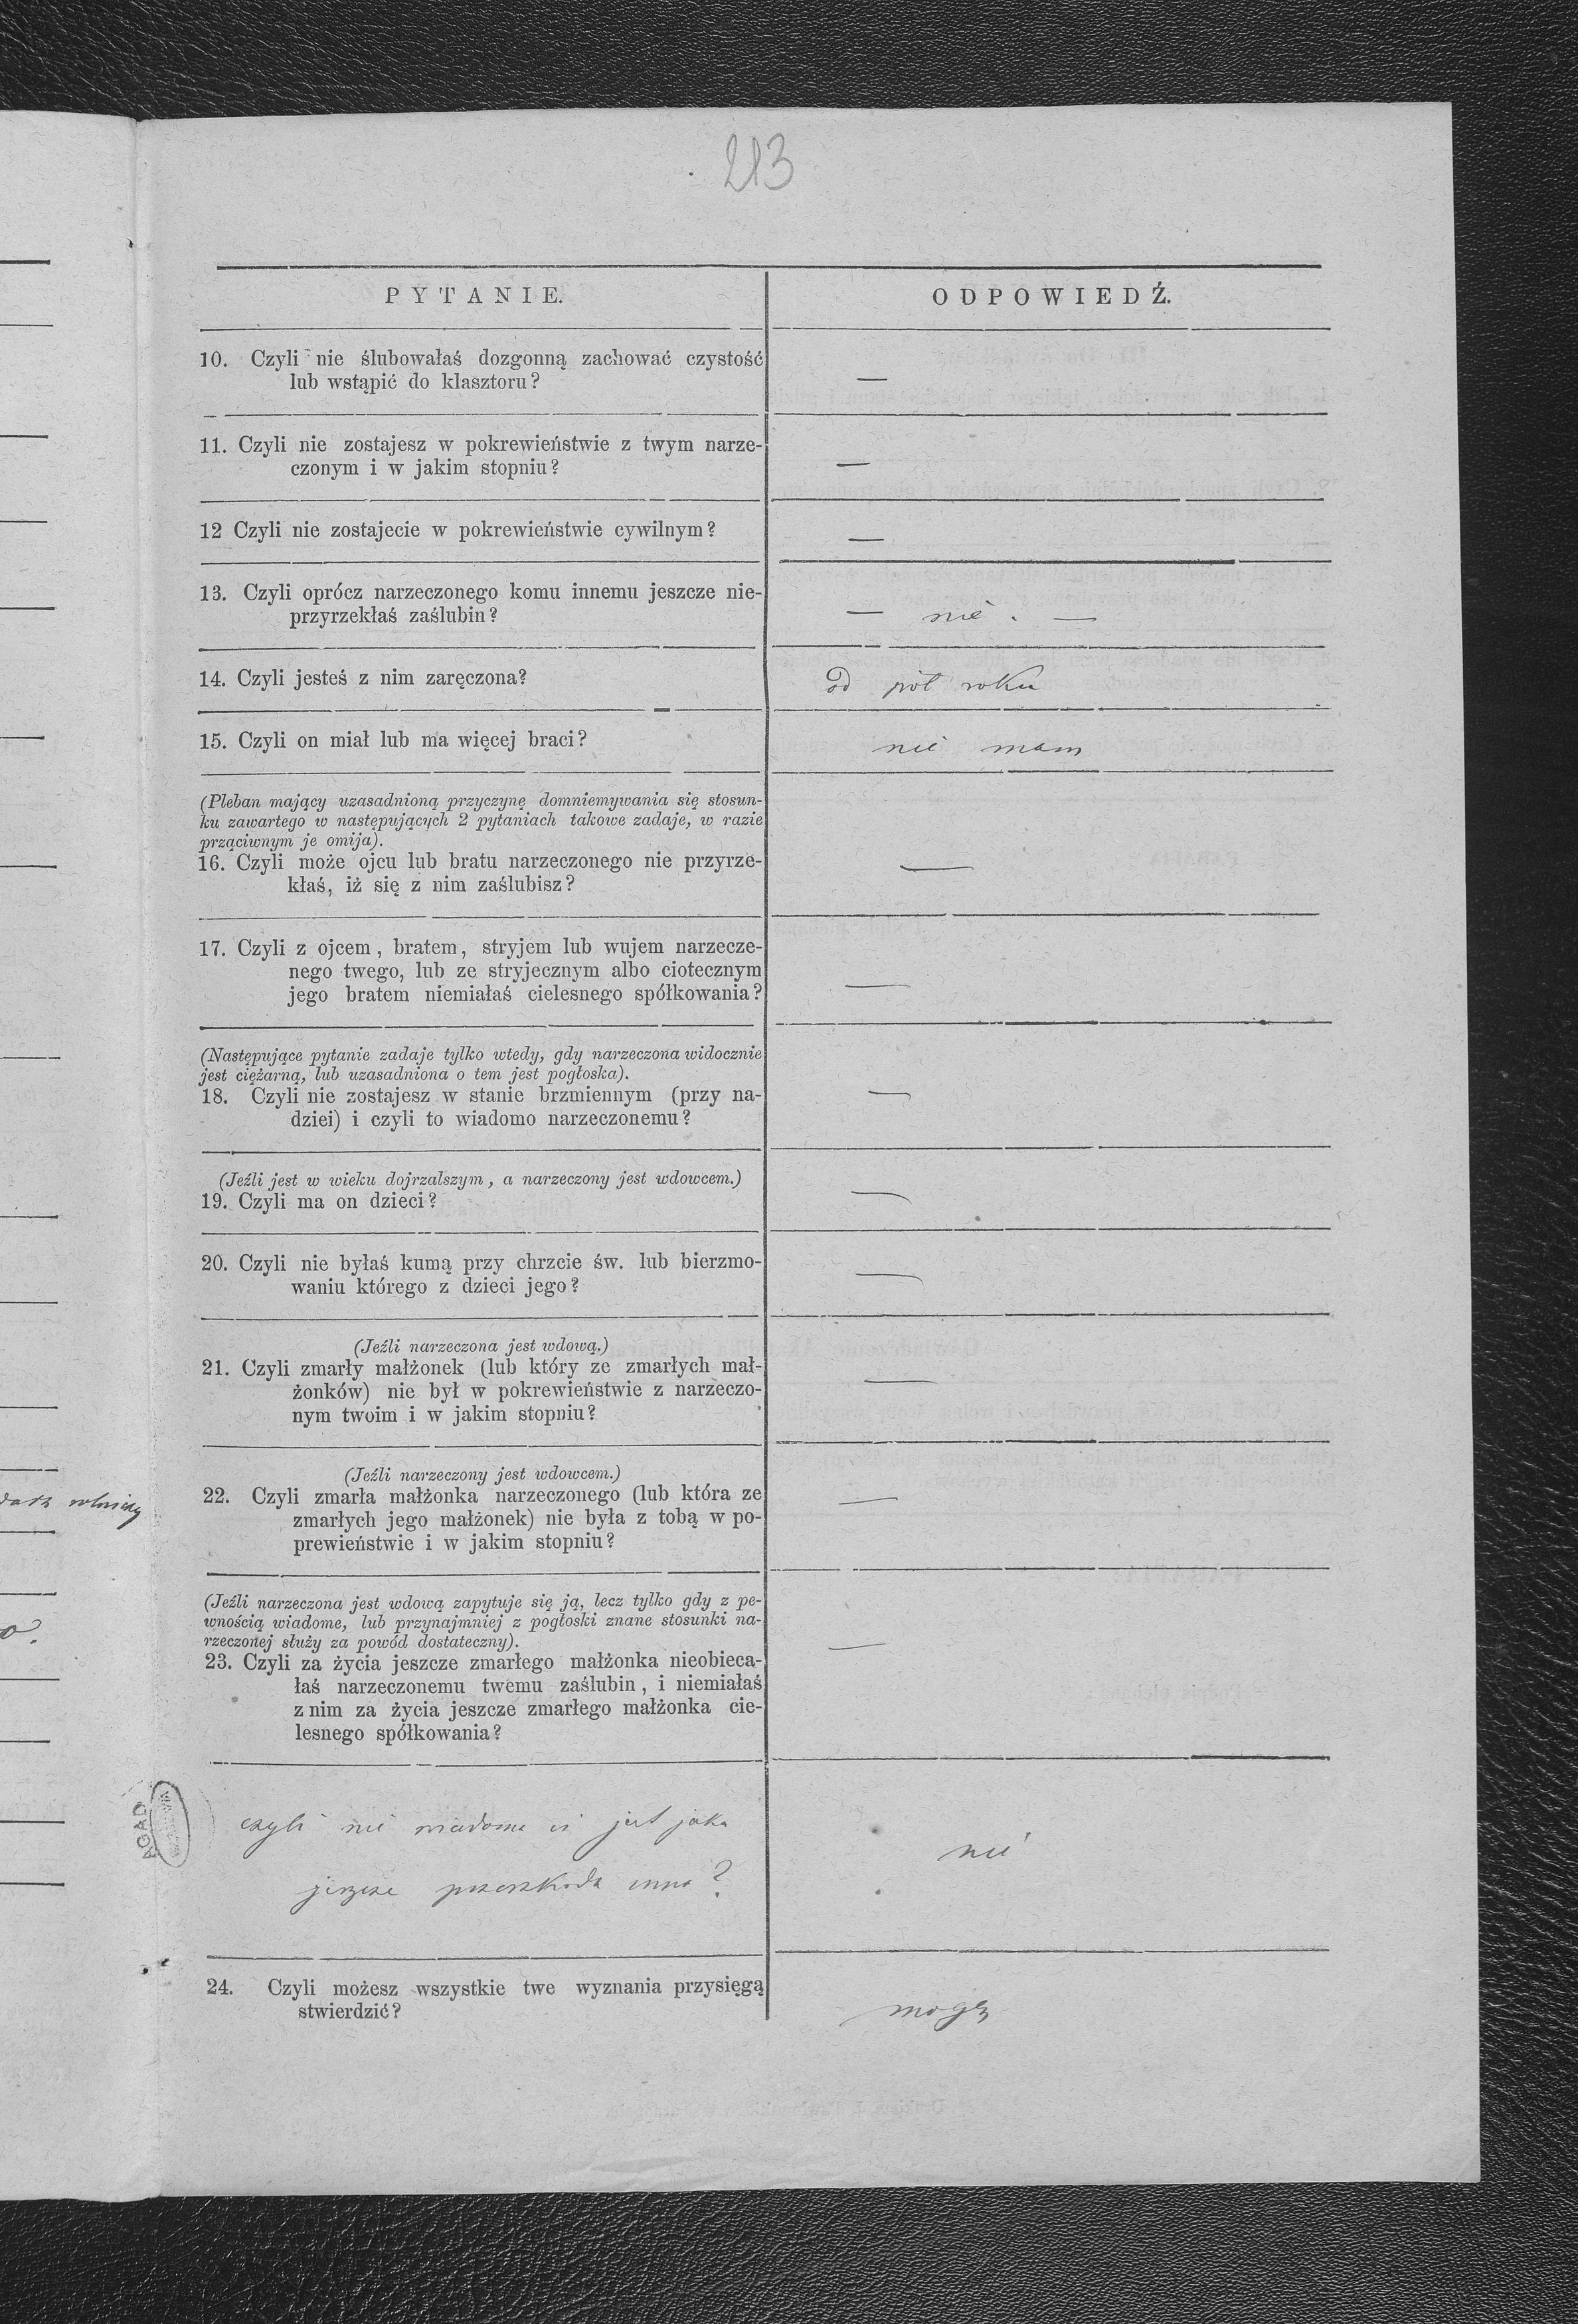 213
PYTANIE.
ODPOWIEDŹ.
10. Czyli nie ślubowałaś dozgonną zachować czystość
lub wstąpić do klasztoru?
—
11. Czyli nie zostajesz w pokrewieństwie z twym narze-
czonym i w jakim stopniu?
—
12 Czyli nie zostajecie w pokrewieństwie cywilnym?
—
13. Czyli oprócz narzeczonego komu innemu jeszcze nie-
przyrzekłaś zaślubin?
— nie. —
14. Czyli jesteś z nim zaręczona?
od pół roku
15. Czyli on miał lub ma więcej braci?
nie mam
(Pleban mający uzasadnioną przyczynę domniemywania się stosun-
ku zawartego w następujących 2 pytaniach takowe zadaje, w razie
prząciwnym je omija).
16. Czyli może ojcu lub bratu narzeczonego nie przyrze-
kłaś, iż się z nim zaślubisz?
—
17. Czyli z ojcem, bratem, stryjem lub wujem narzecze-
nego twego, lub ze stryjecznym albo ciotecznym
jego bratem niemiałaś cielesnego spółkowania?
—
(Następujące pytanie zadaje tylko wtedy, gdy narzeczona widocznie
jest ciężarną, lub uzasadniona o tem jest pogłoska).
18. Czyli nie zostajesz w stanie brzmiennym (przy na-
dziei) i czyli to wiadomo narzeczonemu?
—
(Jeźli jest w wieku dojrzalszym, a narzeczony jest wdowcem.)
19. Czyli ma on dzieci?
—
20. Czyli nie byłaś kumą przy chrzcie św. lub bierzmo-
waniu którego z dzieci jego?
—
(Jeźli narzeczona jest wdową.)
21. Czyli zmarły małżonek (lub który ze zmarłych mał-
żonków) nie był w pokrewieństwie z narzeczo-
nym twoim i w jakim stopniu?
—
(Jeźli narzeczony jest wdowcem.)
22. Czyli zmarła małżonka narzeczonego (lub która ze
zmarłych jego małżonek) nie była z tobą w po-
prewieństwie i w jakim stopniu?
—
(Jeźli narzeczona jest wdową zapytuje się ją, lecz tylko gdy z pe-
wnością wiadome, lub przynajmniej z pogłoski znane stosunki na-
rzeczonej służy za powód dostateczny).
23. Czyli za życia jeszcze zmarłego małżonka nieobieca-
łaś narzeczonemu twemu zaślubin, i niemiałaś
z nim za życia jeszcze zmarłego małżonka cie-
lesnego spółkowania?
—
czyli nie wiadome iż jest jaka
jeszcze przeszkoda inna?
nie
AGAD
24. Czyli możesz wszystkie twe wyznania przysięgą
stwierdzić?
mogę